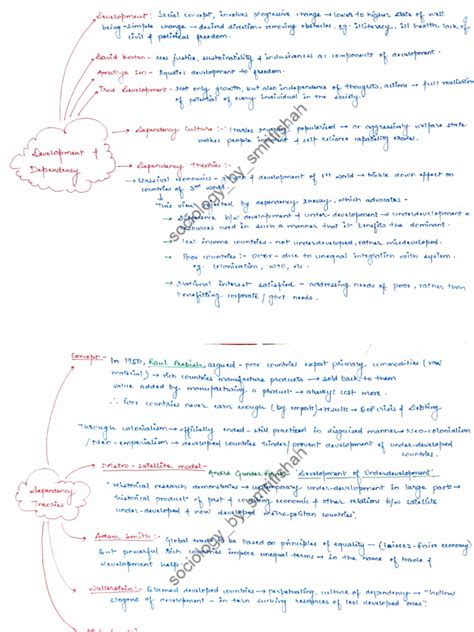 Development : Social concept, involves progressive change → lower to higher state of well
being → simple change → desired direction - removing obstacles, eg. illiteracy, ill health, lack of
civil & political freedom.
David Korten - sees justice, sustainability & inclusiveness as components of development.
Amartya Sen - Equates development to freedom.
True Development - Not only growth, but also independence of thoughts, actions → full realisation
of potential of every individual in the society.
Development &
Dependency
Dependency Culture : Charles Murray, popularised → an aggressively welfare state
makes people & self reliance capability
Dependency theories :-
Classical economics - growth & development of 1st world → trickle down effect on
countries of 3rd world.
This view rejected by dependency theory, which advocates -
→ Difference b/w development & under-development → underdevelopment
resources used in such a manner that it benefits the dominant.
→ low income countries - not underdeveloped, rather misdeveloped.
→ Poor countries :- poor - due to unequal integration with system.
eg. Colonisation, WTO, etc.
→ National interest satisfied - addressing needs of poor, rather than
benefitting corporate / govt needs.
sociology_by_smritishah
Concept - In 1950, Raul Prebish, argued - poor countries export primary commodities (raw
material) → rich countries manufacture products → sold back to them
value added by manufacturing a product → always cost more.
∴ Poor countries never earn enough (by exports) → results → BoP crisis &
Through colonialism → officially ended - still practised in disguised manner → Neo-colonialism
/ Neo-imperialism → developed countries hinder/prevent development of under-developed
countries.
Dependency
Theories
Metro-satellite model -
Andre Gunder Frank - "Development of Underdevelopment"
"Historical research demonstrates → contemporary under-development in large part →
historical product of past & continuing economic & other relation b/w satellite
under-developed & now developed metropolitan countries".
Adam Smith :- Global trade to be based on principles of equality — (laissez-faire economy)
But powerful rich countries impose unequal terms → in the name of trade &
development help.
Wallerstein :- Blamed developed countries → perpetuating culture of dependency → "hollow
slogans of development - in turn sucking resources of less developed ones".
sociology_by_smritishah